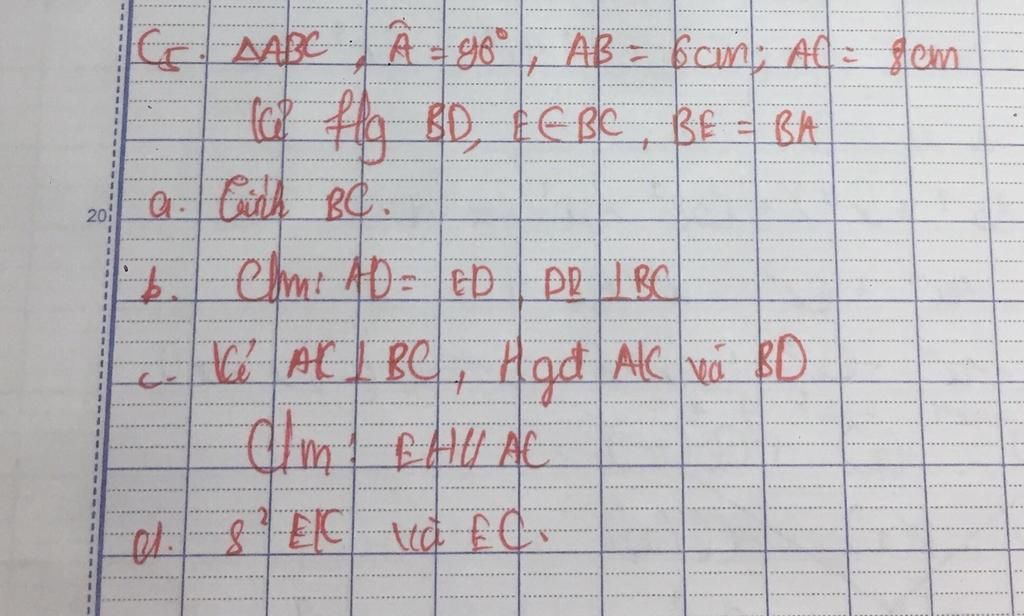 C5. ΔABC, Â = 90°, AB = 6cm; AC = 8cm
Kẻ flg BD, E∈BC, BE = BA
20
a. Tính BC.
b. C/m: AD = ED, DE ⊥ BC
c. Kẻ AK ⊥ BC, H gđ AK và BD
C/m: EH // AC
d. S² EK và EC.